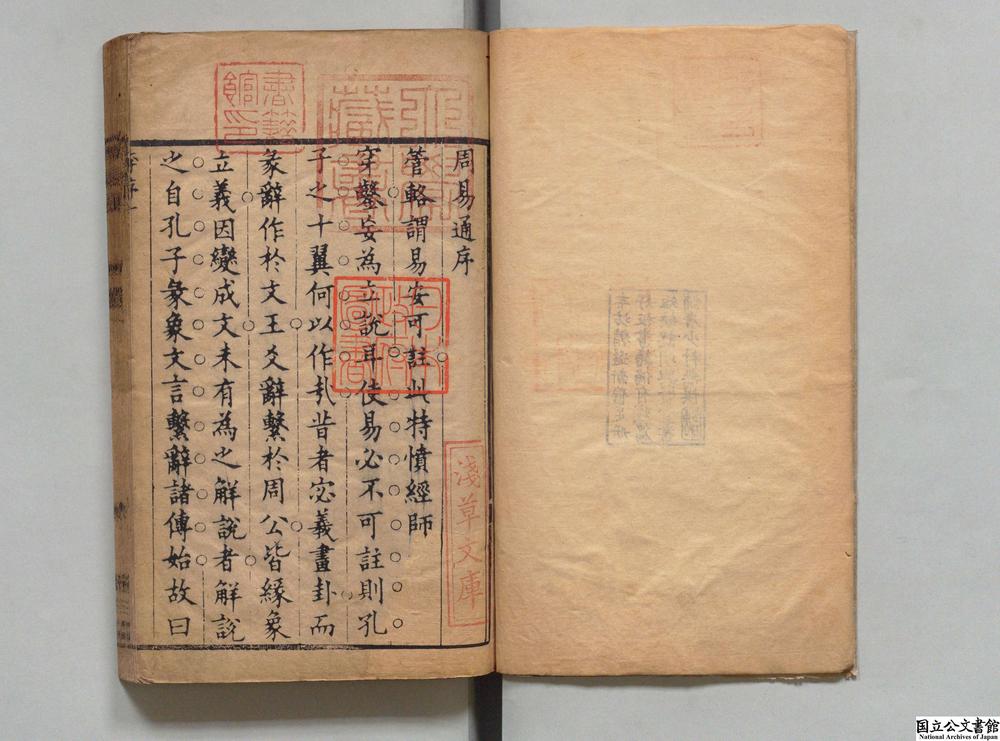 周易通序
管輅謂易安可註此特憤經師
穿鑿妄為立說耳使易必不可註則孔
子之十翼何以作哉昔者宓羲畫卦而
彖辭作於文王爻辭繫於周公皆緣象
立義因變成文未有為之解說者解說
之自孔子彖象文言繫辭諸傳始故曰
書籍館印
淺草文庫
日本政府圖書
国立公文書館
National Archives of Japan